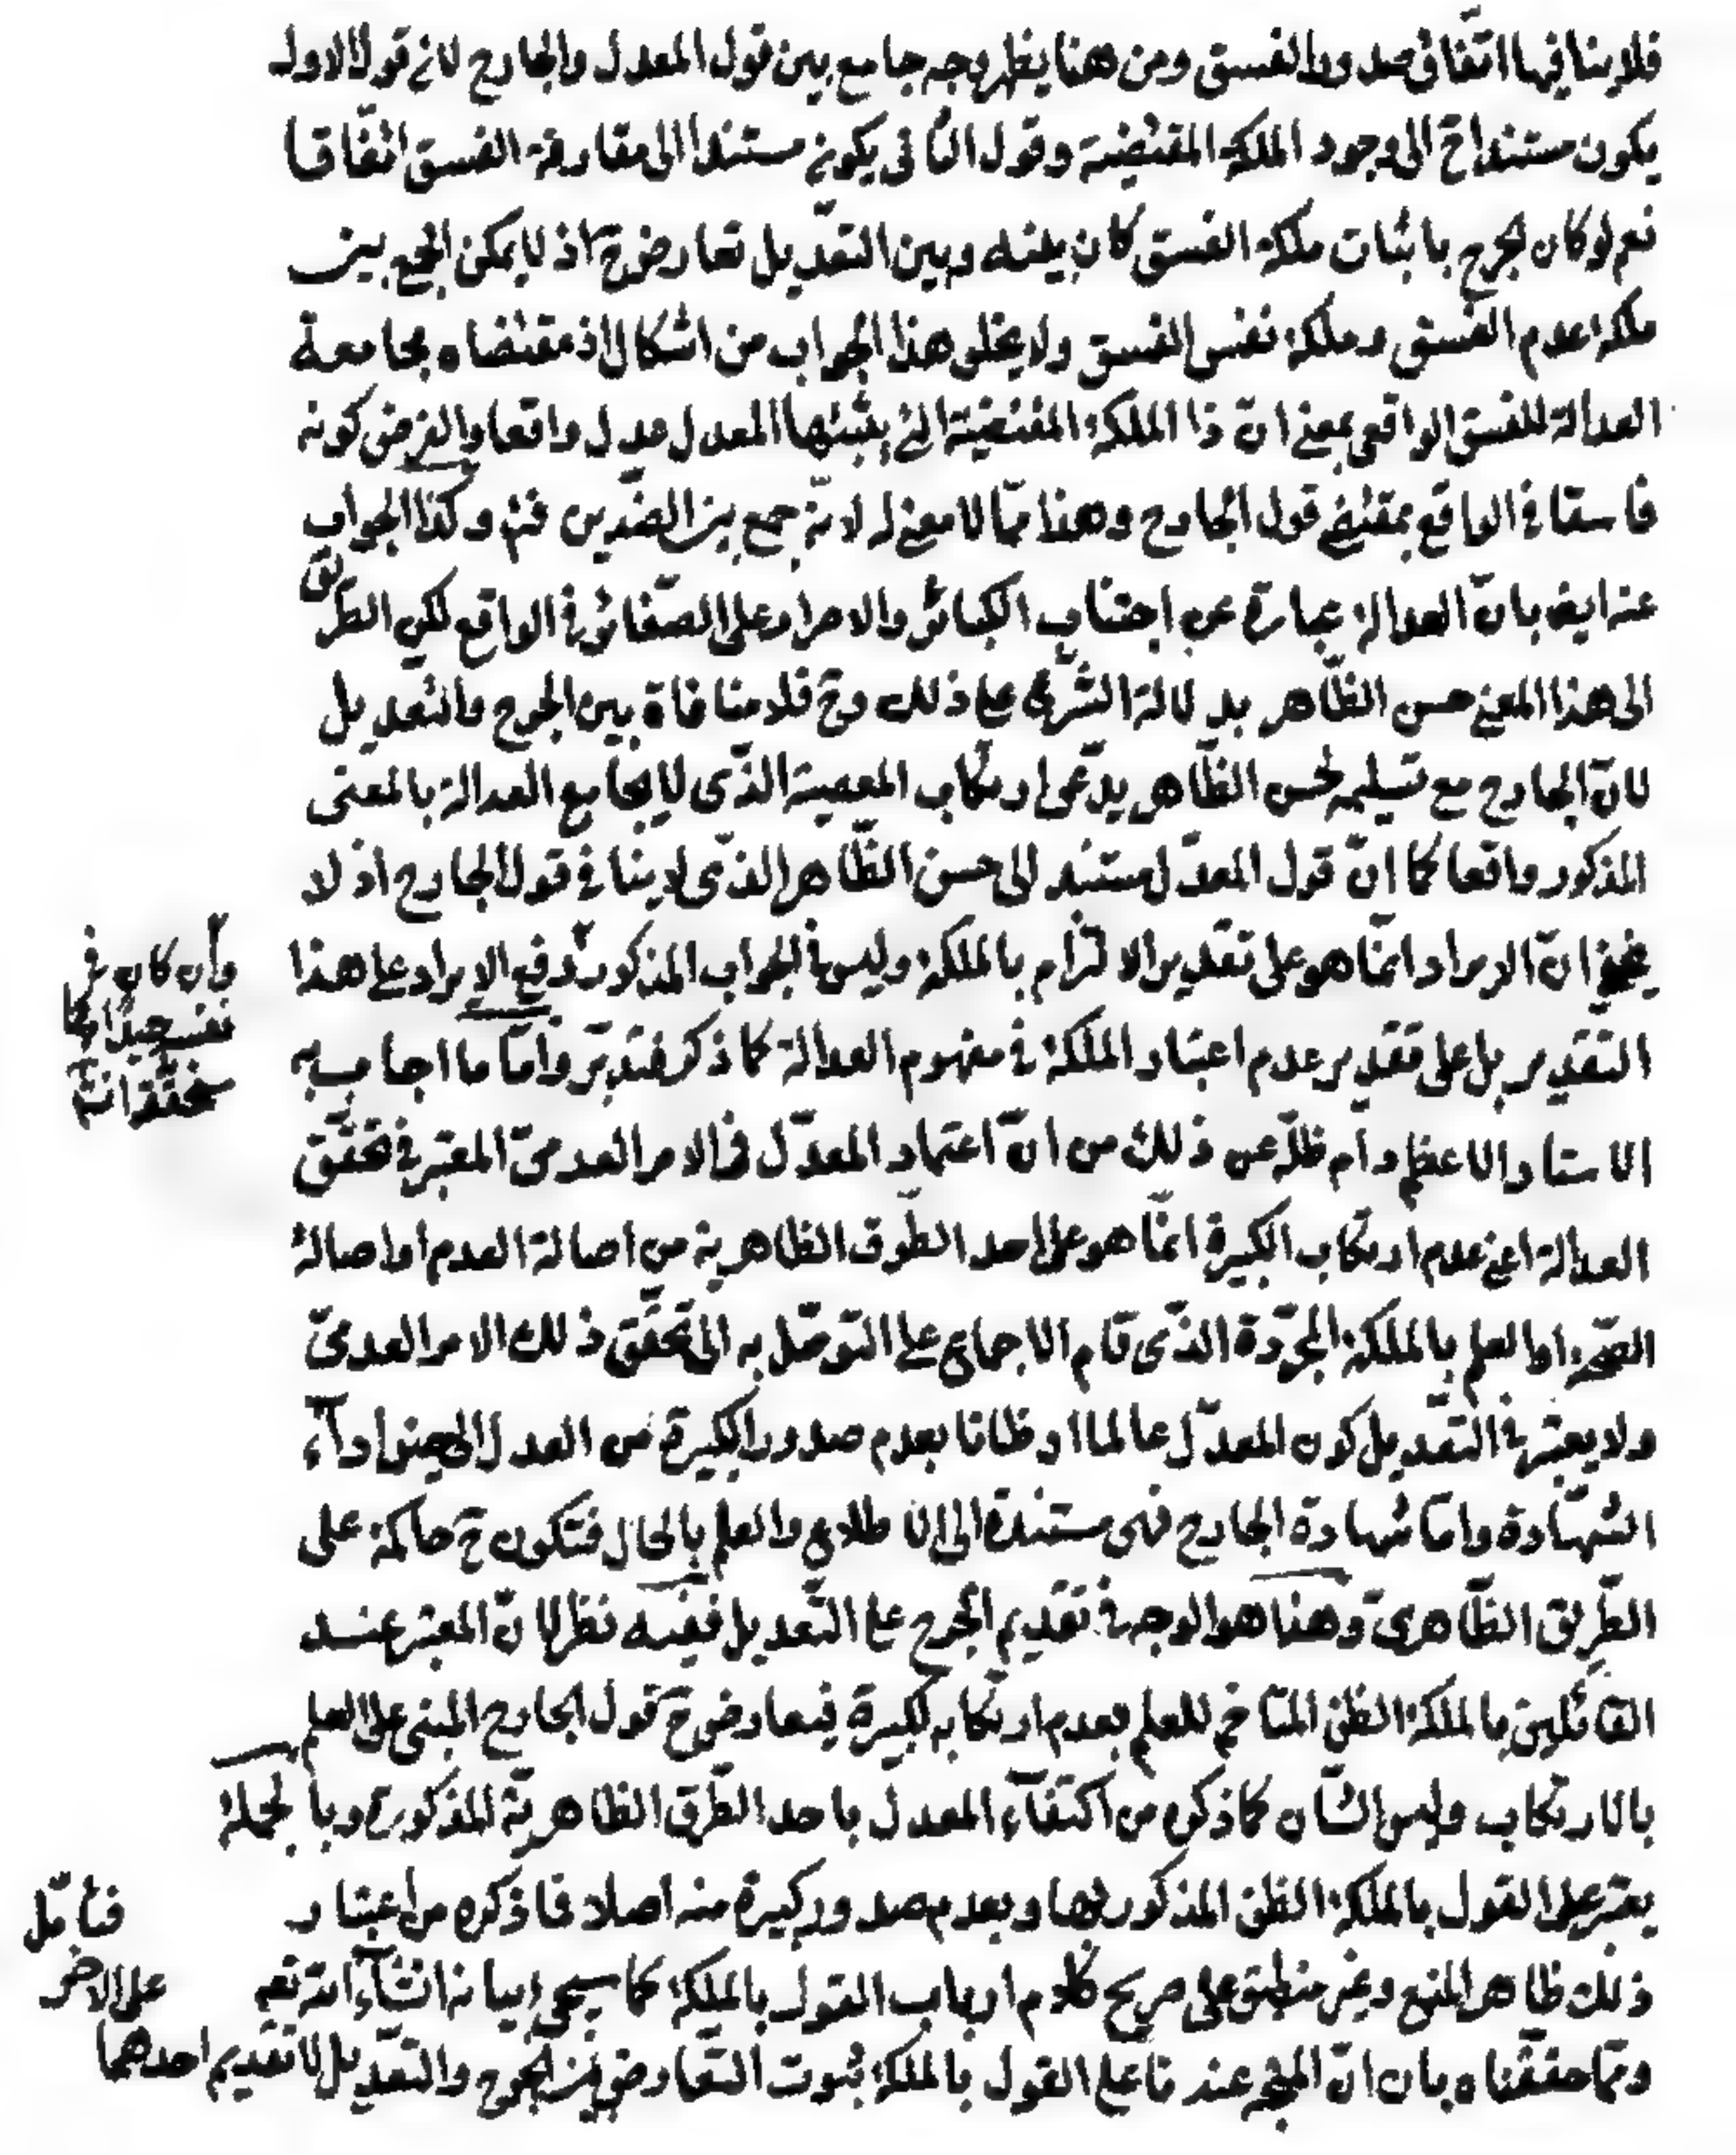 فلا ينافيها اتّفاق صدور الفسق ومن هنا يظهر وجه جامع بين قول المعدل والجارح لانّ قول الاول
يكون مستندا ح الى وجود الملكة المقتضية وقول الثانى يكون مستندا الى مقارفة الفسق اتّفاقا
نعم لو كان الجرح باثبات ملكة الفسق كان بينه وبين التعديل تعارض ح اذ لا يمكن الجمع بين
ملكة عدم الفسق وملكة نفس الفسق ولا يخلو هذا الجواب من اشكال اذ مقتضاه مجامعة
العدالة للفسق الواقعى بمعنى ان ذا الملكة المقتضية التى يثبتها المعدل عدل واقعا والفرض كونه
فاسقا فى الواقع بمقتضى قول الجارح وهذا ممّا لا معنى له لانّه جمع بين الضدّين فتم وكذا الجواب
عنه ايض بانّ العدالة عبارة عن اجتناب الكبائر والاصرار على الصّغائر فى الواقع لكن الطّريق
الى هذا المعنى حسن الظّاهر بدلالة الشّرع على ذلك وح فلا منافاة بين الجرح والتعديل
لانّ الجارح مع تسليمه لحسن الظّاهر يدّعى ارتكاب المعصية الذّى لا يجامع العدالة بالمعنى
المذكور واقعا كما انّ قول المعدّل مستند الى حسن الظّاهر الذّى لا ينافى قول الجارح اذ لا
يخفى انّ الايراد انّما هو على تقدير الالتزام بالملكة وليس فى الجواب المذكور دفع الايراد على هذا
وان كان فى
نفسه جيدا كما
ستحقّقه انش
التقدير بل على تقدير عدم اعتبار الملكة فى مفهوم العدالة كما ذكر فتدبّر وامّا ما اجاب به
الاستاد الاعظم دام ظلّه عن ذلك من انّ اعتماد المعدّل فى الامر العدمىّ المعتبر فى تحقّق
العدالة اعنى عدم ارتكاب الكبيرة انّما هو على احد الطّرق الظاهرية من اصالة العدم او اصالة
الصّحة او العلم بالملكة المجرّدة الذّى قام الاجماع على التوصّل به الى تحقّق ذلك الامر العدمىّ
ولا يعتبر فى التّعديل كون المعدّل عالما او ظانا بعدم صدور الكبيرة من العدل الى حين اداء
الشّهادة وامّا شهادة الجارح فهى مستندة الى الاطلاع والعلم بالحال فتكون ح حاكمة على
الطّريق الظّاهرىّ وهذا هو الوجه فى تقديم الجرح على التّعديل ففيه نظر لانّ المعتبر عند
القائلين بالملكة الظن المتاخم للعلم بعدم ارتكابه لكبيرة فيعارض ح قول الجارح المبنى على العلم
بالارتكاب وليس الشّان كما ذكره من اكتفاء المعدل باحد الطّرق الظاهريّة المذكورة وبالجملة
يعتبر على القول بالملكة الظن المذكور بها وبعدم صدور كبيرة منه اصلا فما ذكره من اعتبار
ذلك ظاهر المنع وغير منطبق على صريح كلام ارباب القول بالملكة كما سيجىء بيانه انشاء الله تعم
فتامّل
وممّا حقّقناه بان انّ المتّجه عندنا على القول بالملكة ثبوت التّعارض بين الجرح والتّعديل لا تقديم احدهما
على الاخر